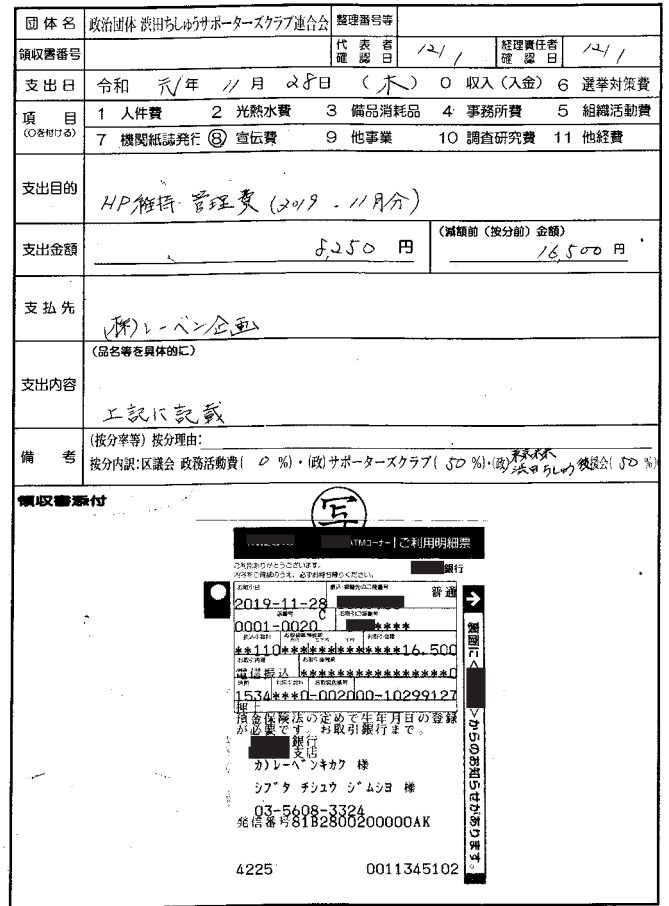 団体名 政治団体 渋田ちしゅうサポーターズクラブ連合会 整理番号等
領収書番号 代表者確認日 12/1 経理責任者確認日 12/1
支出日 令和 元年 11月 28日 (木) 0 収入(入金) 6 選挙対策費
項目 (○を付ける) 1 人件費 2 光熱水費 3 備品消耗品 4 事務所費 5 組織活動費
7 機関紙誌発行 ⑧ 宣伝費 9 他事業 10 調査研究費 11 他経費
支出目的 HP維持・管理費 (2019.11月分)
支出金額 8,250 円 (減額前(按分前)金額) 16,500 円
支払先 (株)レーベン企画
(品名等を具体的に)
支出内容 上記に記載
備考 (按分率等) 按分理由:
按分内訳:区議会 政務活動費( 0 %)・(政)サポーターズクラブ( 50 %)・(政) 渋田ちしゅう 後援会( 50 %)
領収書添付
写
ATMコーナー ご利用明細票
ご利用ありがとうございます。
内容をご確認のうえ、必ずお持ち帰りください。
銀行
お取引日
普通
2019-11-28
店番号 C
0001-0020 ****
**110*************16.500
お取引内容
電信振込 ******************0
1534***0-002000-10299127
押上
預金保険法の定めで生年月日の登録
が必要です。お取引銀行まで。
銀行
支店
カ)レーベンキカク 様
シブタ チシユウ ジムシヨ 様
03-5608-3324
発信番号81B2800200000AK
4225 0011345102
裏面に< >からのお知らせがあります。